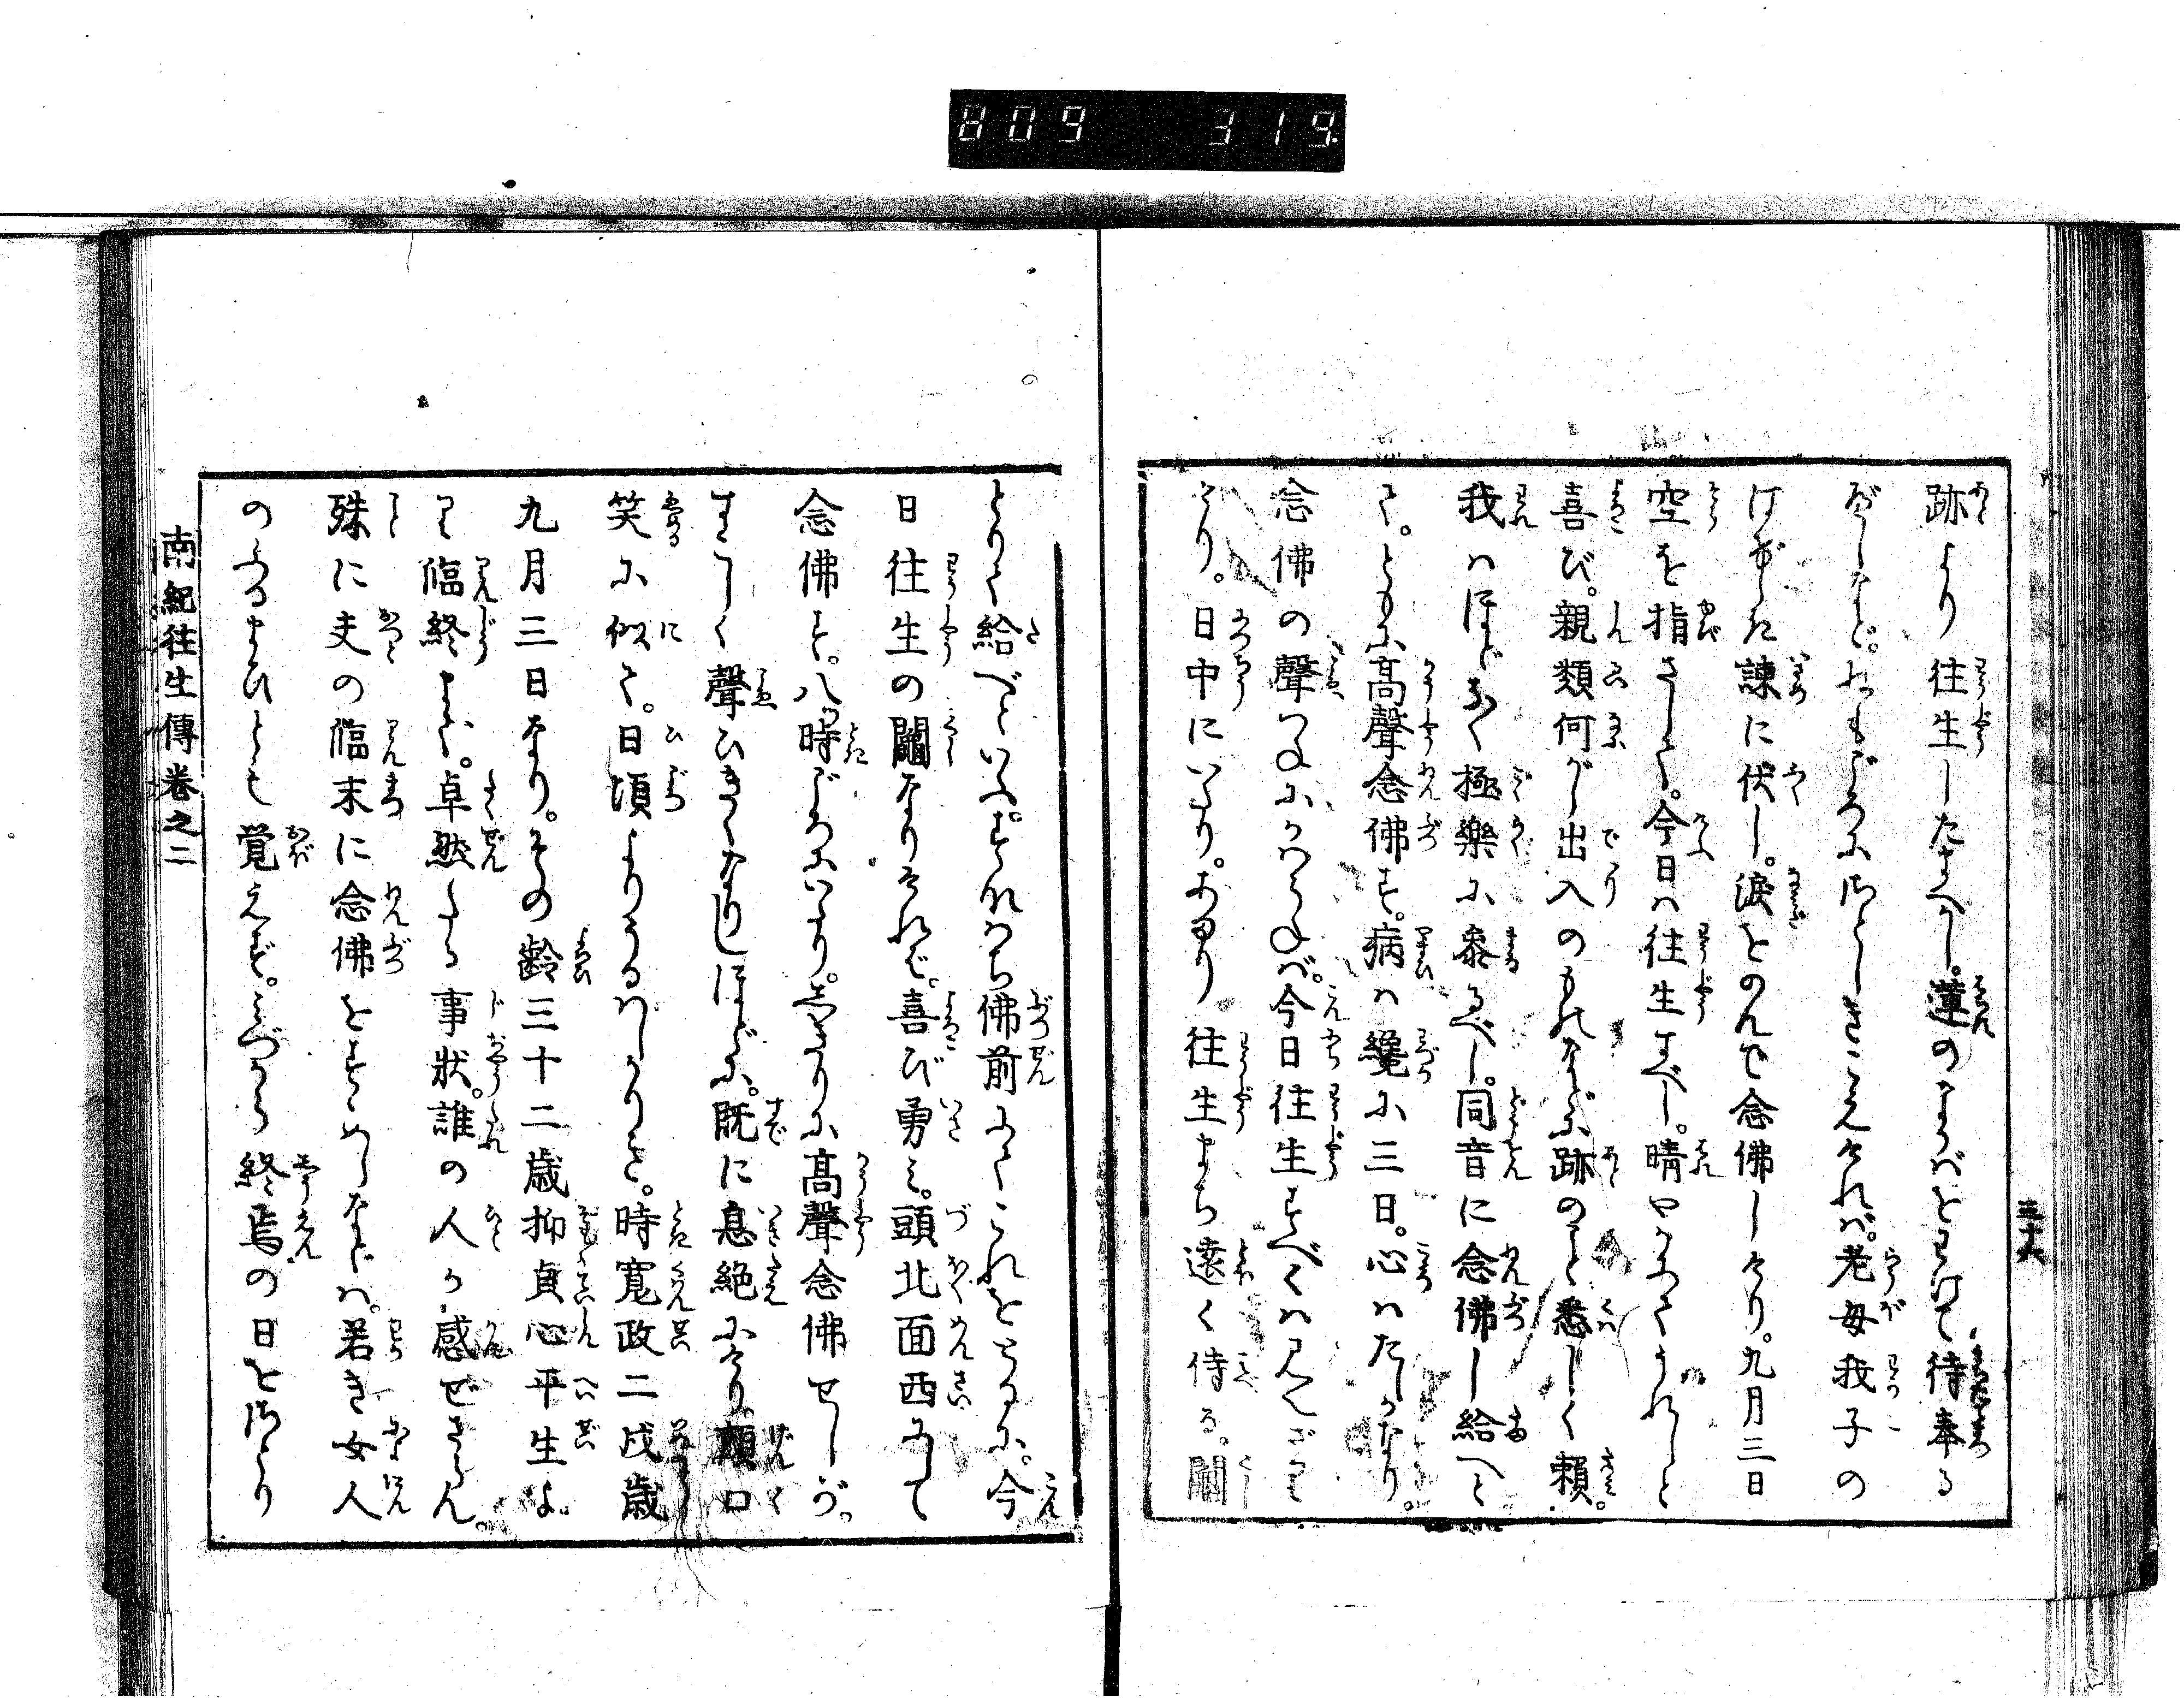 809 319
三十六
跡より往生したまへかし。蓮のなかばをわけて待奉る
べしなど。ねもごろにさとしきこえければ。老母我子の
けなげな諌に伏し。涙をのんで念佛しけり。九月三日
空を指さして。今日は往生すべし。晴やかにてうれしと
喜び。親類何がし出入のものなどに跡のこと悉しく頼。
我はほどなく極樂に参るべし。同音に念佛し給へと
て。ともに高聲念佛す。病は纔に三日。心はたしかなり。
念佛の聲つねにかはらねば。今日往生すべくは見へざり
けり。日中にいたり。あまり往生まち遠く侍る。鬮
とりて給べといふ。すなはち佛前にてこれをとるに。今
日往生の鬮なりければ。喜び勇み。頭北面西にして
念佛す。八時ごろにいたり。しきりに高聲念佛せしが。
すこしく聲ひきくなりしほどに。既に息絶にけり。顔口
笑に似て。日頃よりうるはしかりと。時寛政二戌歳
九月三日なり。その齢三十二歳抑貞心平生よ
り臨終まで。卓然たる事状。誰の人か感ぜざらん。
殊に夫の臨末に念佛をすゝめしなどは。若き女人
のふるまひとも覚えず。みづから終焉の日をさとり
南紀往生傳巻之二